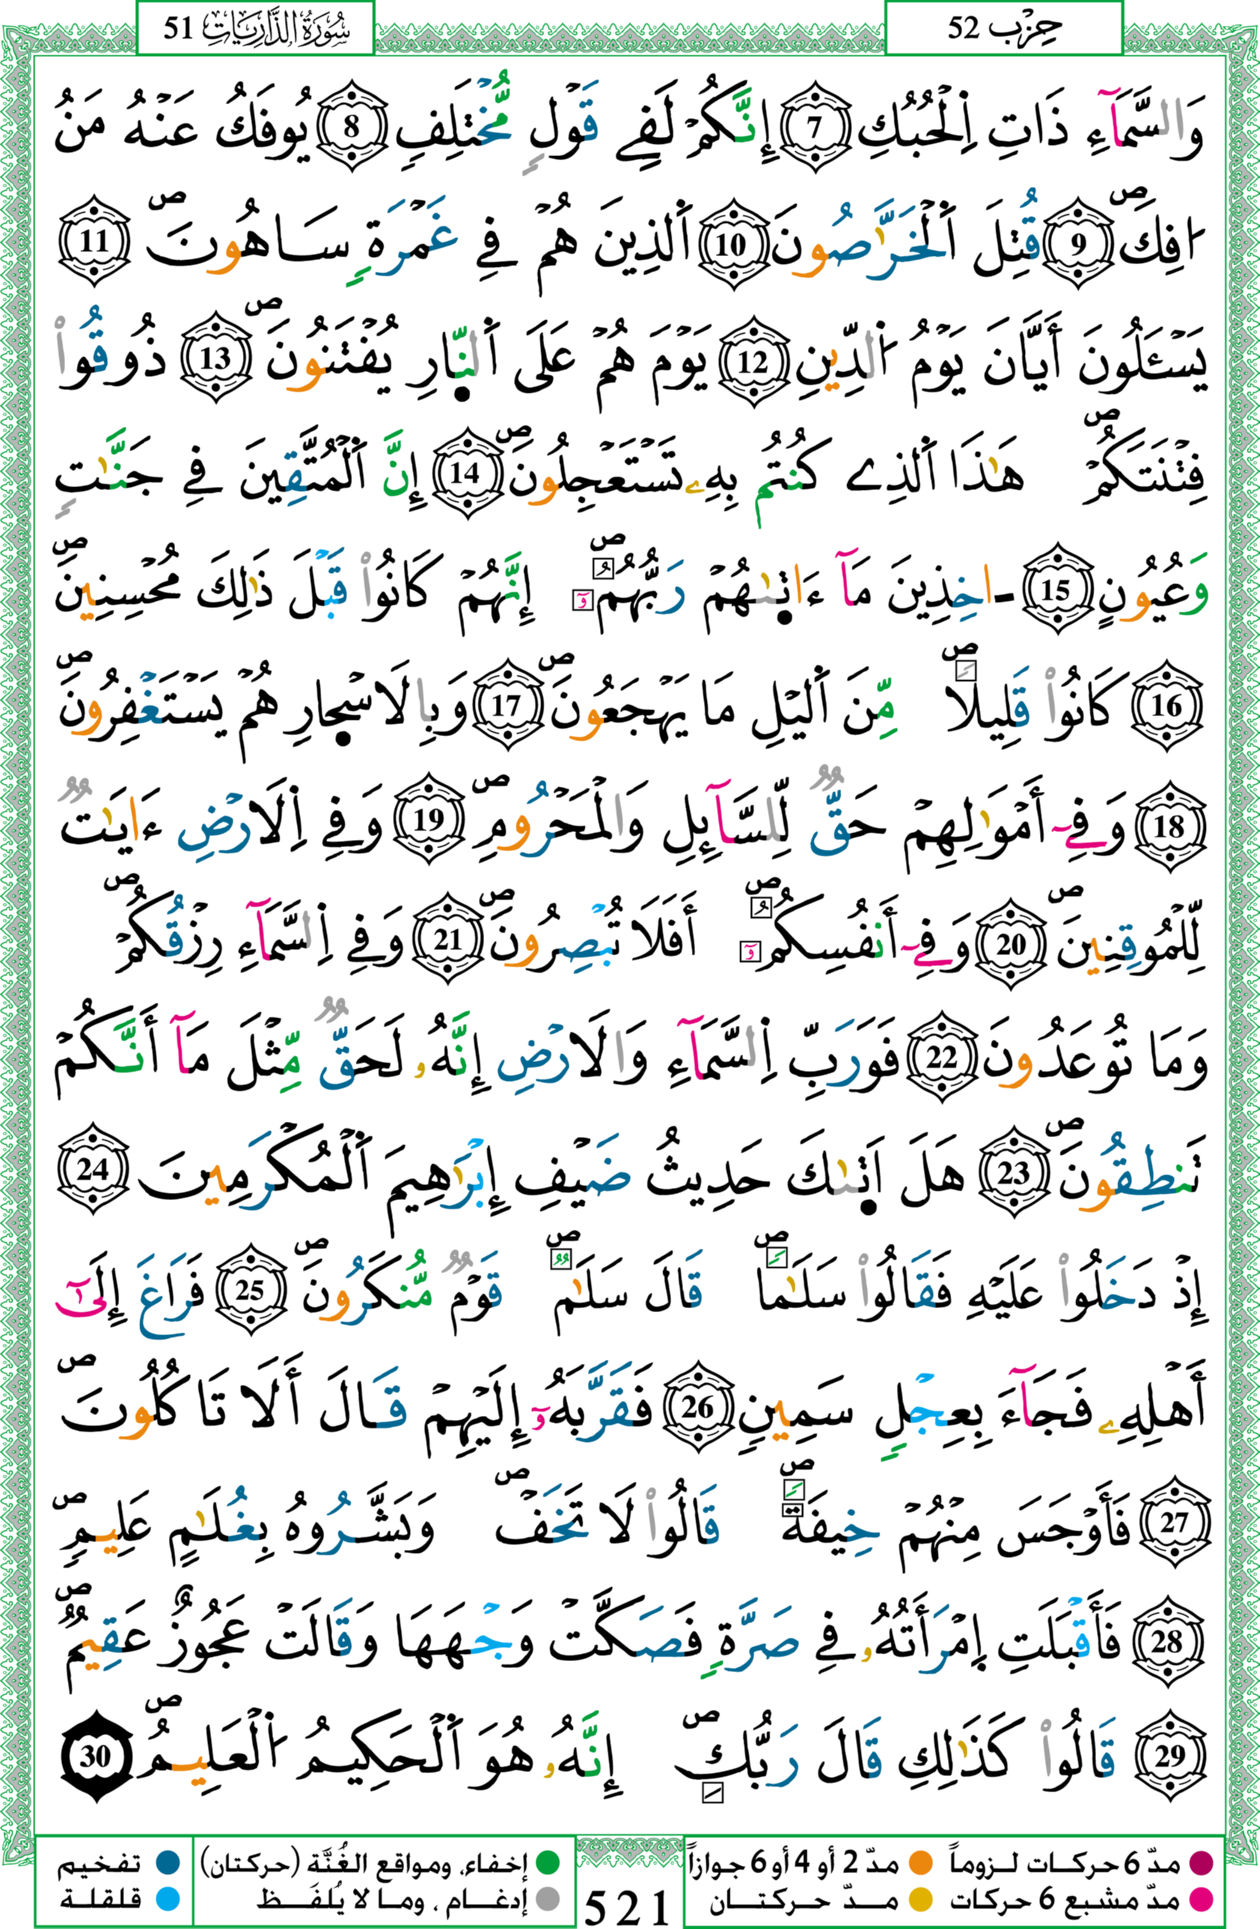 سُورَةُ الذَّارِيَاتِ 51
حِزْب 52
وَالسَّمَآءِ ذَاتِ اِ۬لْحُبُكِ 7 إِنَّكُمْ لَفِے قَوْلٖ مُّخْتَلِفٖ 8 يُوفَكُ عَنْهُ مَنُ
ا۟فِكَۖ 9 قُتِلَ اَ۬لْخَرَّٰصُونَ 10 اَ۬لذِينَ هُمْ فِے غَمْرَةٖ سَاهُونَۖ 11
يَسْـَٔلُونَ أَيَّانَ يَوْمُ اُ۬لدِّينِ 12 يَوْمَ هُمْ عَلَى اَ۬لنّ۪ارِ يُفْتَنُونَۖ 13 ذُوقُواْ
فِتْنَتَكُمْۖ هَٰذَا اَ۬لذِے كُنتُم بِهِۦ تَسْتَعْجِلُونَۖ 14 إِنَّ اَ۬لْمُتَّقِينَ فِے جَنَّٰتٖ
وَعُيُونٍ 15 ـاخِذِينَ مَآ ءَات۪يٰهُمْ رَبُّهُمُۥٓۖ إِنَّهُمْ كَانُواْ قَبْلَ ذَٰلِكَ مُحْسِنِينَۖ
16 كَانُواْ قَلِيلاٗۖ مِّنَ اَ۬ليْلِ مَا يَهْجَعُونَۖ 17 وَبِالَاسْح۪ارِ هُمْ يَسْتَغْفِرُونَۖ
18 وَفِےٓ أَمْوَٰلِهِمْ حَقّٞ لِّلسَّآئِلِ وَالْمَحْرُومِۖ 19 وَفِے اِ۬لَارْضِ ءَايَٰتٞ
لِّلْمُوقِنِينَۖ 20 وَفِےٓ أَنفُسِكُمُۥٓۖ أَفَلَا تُبْصِرُونَۖ 21 وَفِے اِ۬لسَّمَآءِ رِزْقُكُمْۖ
وَمَا تُوعَدُونَ 22 فَوَرَبِّ اِ۬لسَّمَآءِ وَالَارْضِ إِنَّهُۥ لَحَقّٞ مِّثْلَ مَآ أَنَّكُمْ
تَنطِقُونَۖ 23 هَلَ اَت۪يٰكَ حَدِيثُ ضَيْفِ إِبْرَٰهِيمَ اَ۬لْمُكْرَمِينَ 24
إِذْ دَخَلُواْ عَلَيْهِ فَقَالُواْ سَلَٰماٗۖ قَالَ سَلَٰمٞۖ قَوْمٞ مُّنكَرُونَۖ 25 فَرَاغَ إِلَىٰٓ
أَهْلِهِۦ فَجَآءَ بِعِجْلٖ سَمِينٖ 26 فَقَرَّبَهُۥٓ إِلَيْهِمْ قَالَ أَلَا تَاكُلُونَۖ
27 فَأَوْجَسَ مِنْهُمْ خِيفَةٗۖ قَالُواْ لَا تَخَفْۖ وَبَشَّرُوهُ بِغُلَٰمٍ عَلِيمٖۖ
28 فَأَقْبَلَتِ اِ۪مْرَأَتُهُۥ فِے صَرَّةٖ فَصَكَّتْ وَجْهَهَا وَقَالَتْ عَجُوزٌ عَقِيمٞۖ
29 قَالُواْ كَذَٰلِكِ قَالَ رَبُّكِۖ إِنَّهُۥ هُوَ اَ۬لْحَكِيمُ اُ۬لْعَلِيمُۖ 30
مدّ 6 حركات لـزوماً مدّ 2 أو 4 أو 6 جوازاً
مدّ مشبع 6 حركات مدّ حـركتـان
521
إخفاء، ومواقع الغُنَّة (حركتان) تفخيم
إدغـام ، ومـا لا يُلفَـظ قلقلة